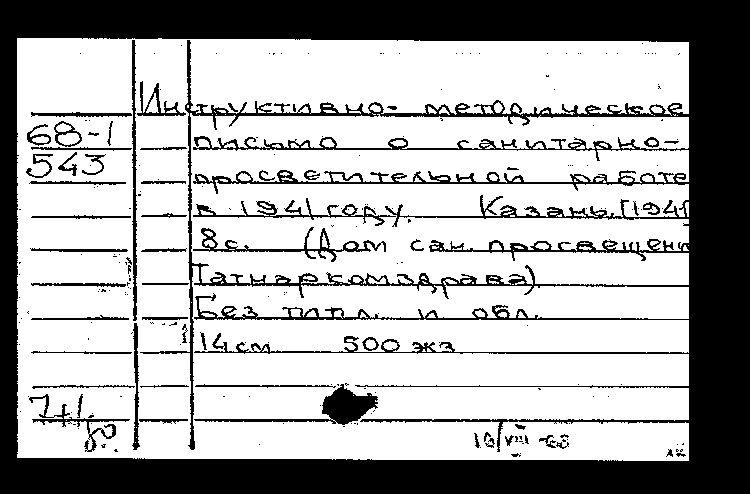 Инструктивно- методическое
68-1 письмо о санитарно-
543 просветительной работе
в 1941 году. Казань, [1941]
8с. (Дом сан. просвещени
Татнаркомздрава)
Без тит.л. и обл.
14 см 500 экз
7+1
10/VIII-68